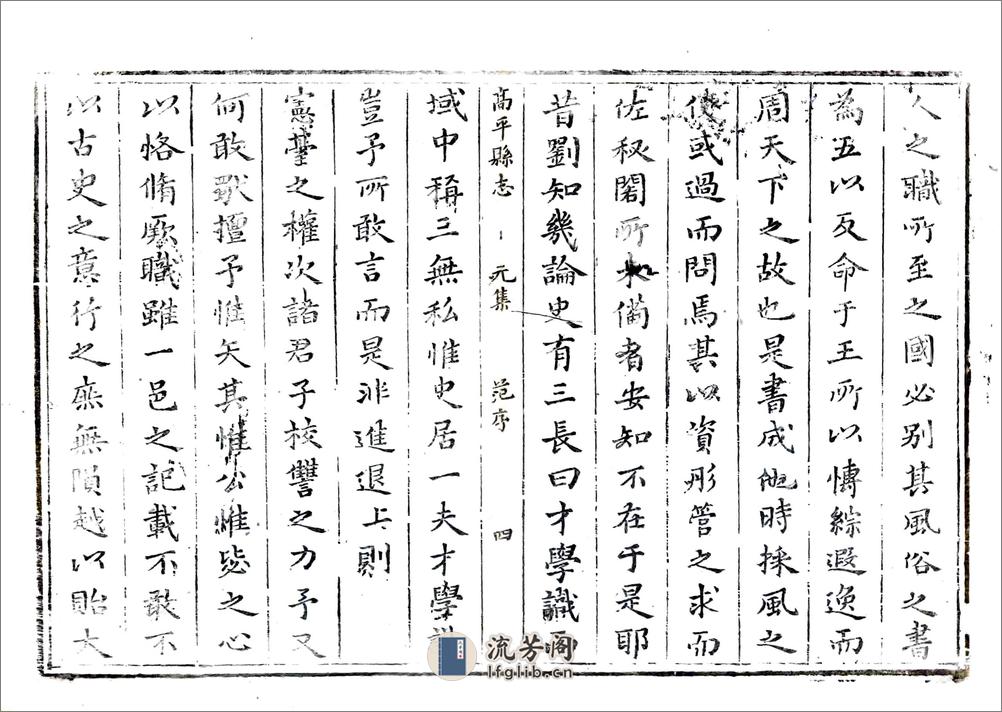 人之職所至之國必别其風俗之書
為五以反命于王所以慱綜遐逸而
周天下之故也是書成他時採風之
使或過而問焉其以資彤管之求而
佐秘閣所未備者安知不在于是耶
昔劉知幾論史有三長曰才學識
高平縣志 元集 范序 四
域中稱三無私惟史居一夫才學
豈予所敢言而是非進退上則
憲臺之權次諸君子校讐之力予又
何敢獸擅予惟矢其惟公惟毖之心
以恪脩厥職雖一邑之記載不敢不
以古史之意行之庶無隕越以貽大
流芳阁
lfglib.cn